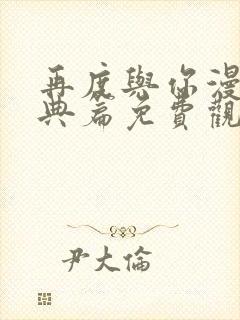 再度與你漫
典篇免費觀
尹大倫